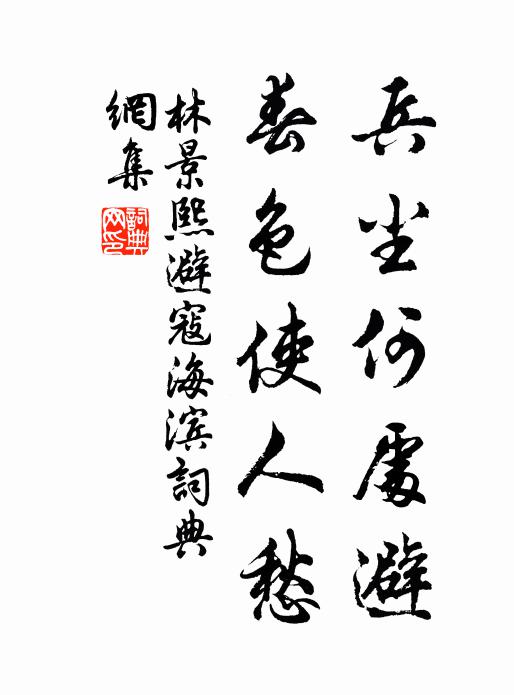 兵尘何處避
春色使人愁
林景熙避寇海滨詞典
網集
詞典网印